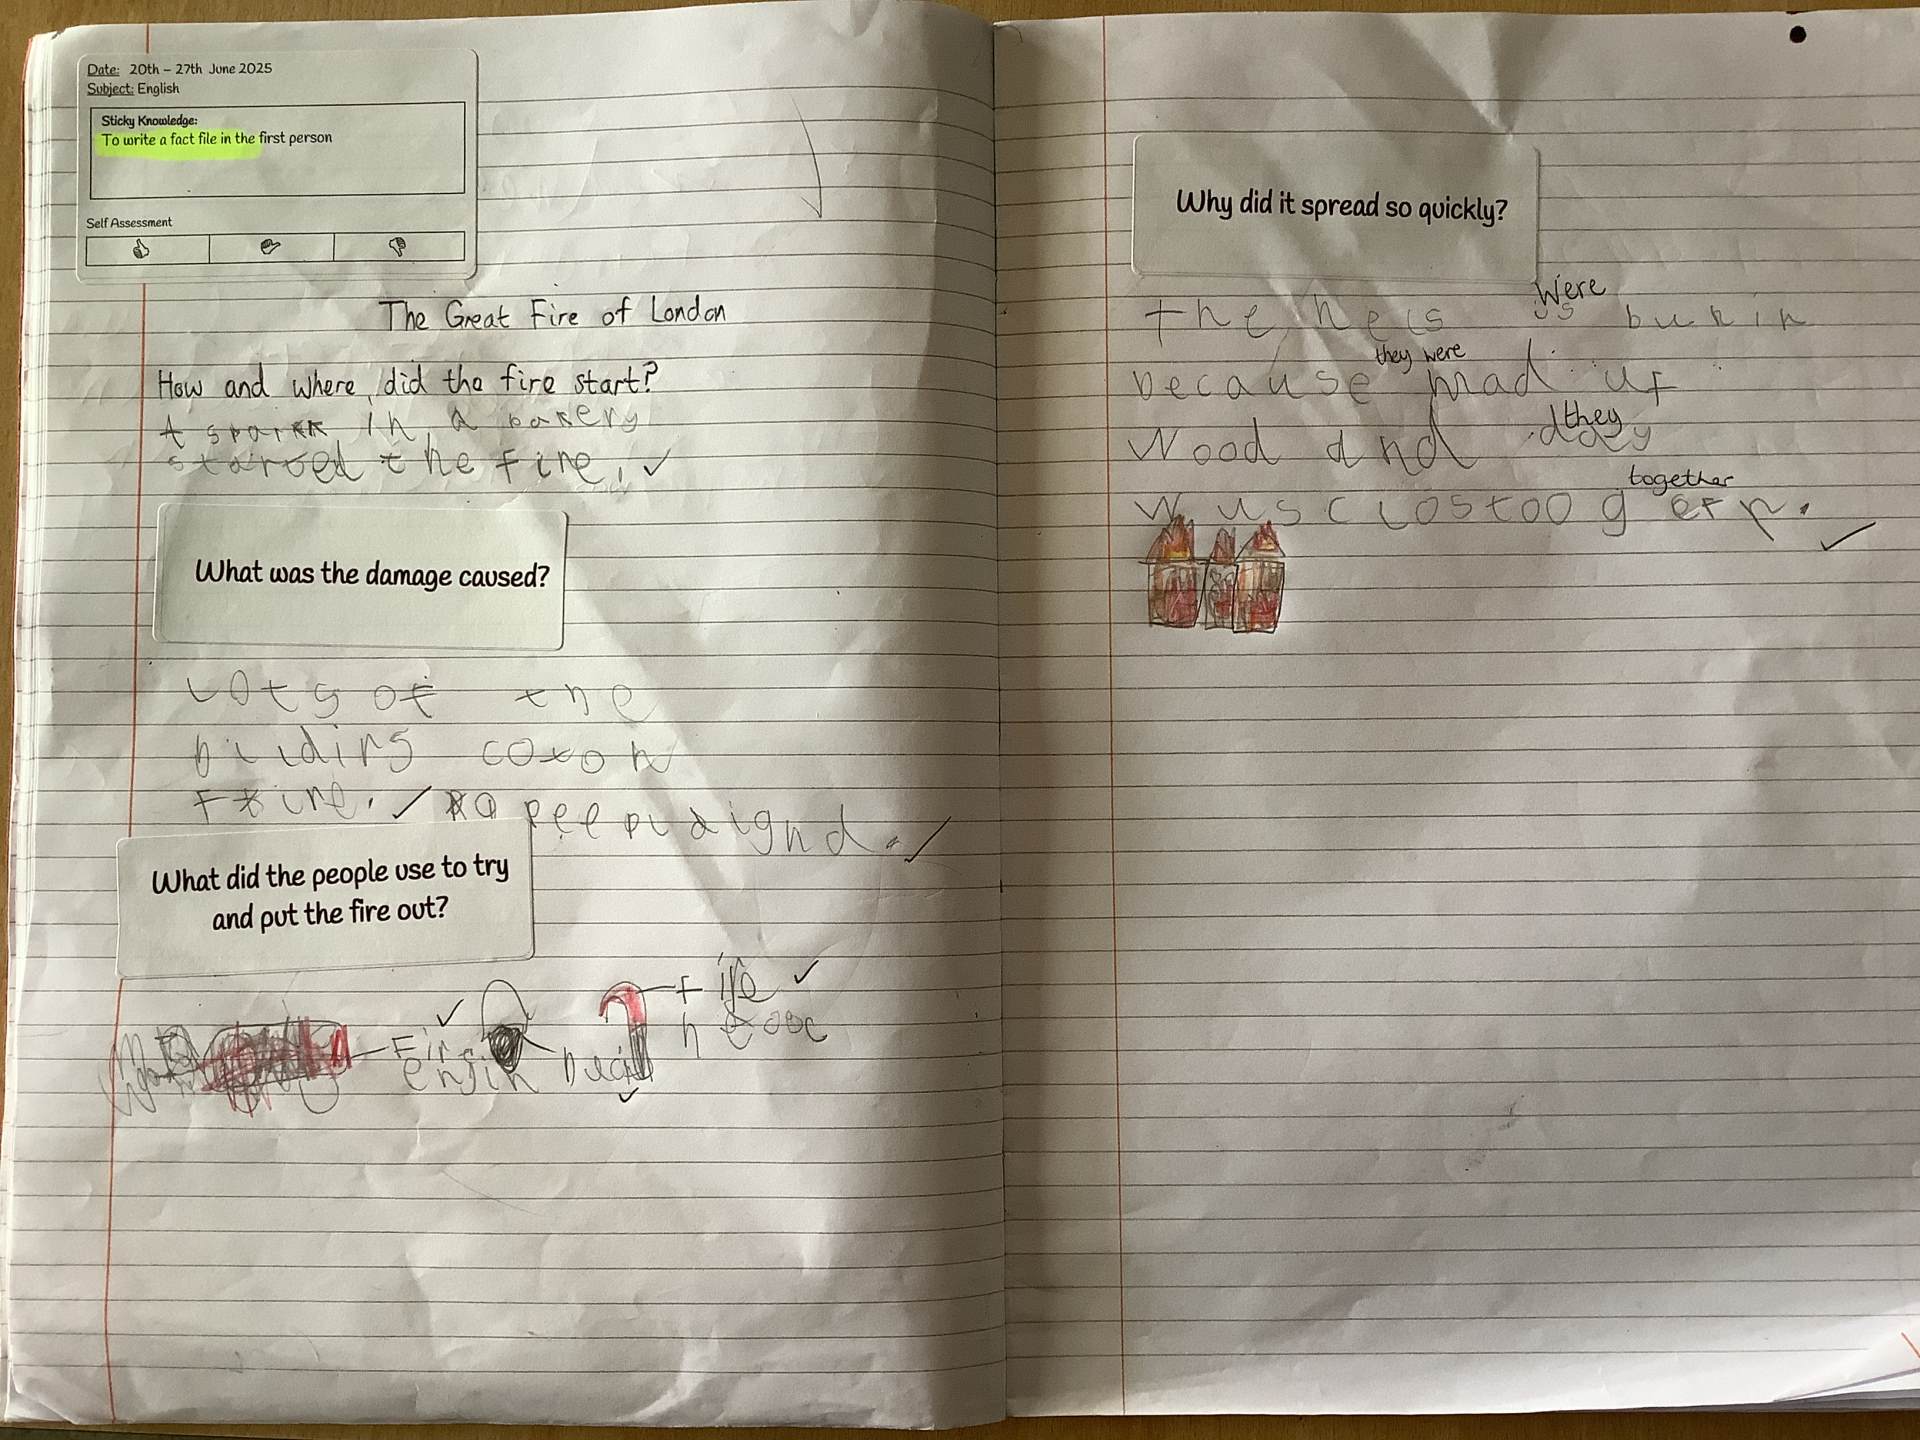 Date: 20th – 27th June 2025
Subject: English
Sticky Knowledge:
To write a fact file in the first person
Self Assessment
The Great Fire of London
How and where did the fire start?
A spark in a bakery
started the fire. ✓
What was the damage caused?
Lots of the
coton
✓ peepl dignd. ✓
What did the people use to try
and put the fire out?
✓ Fir
engin
✓
Fire ✓
Why did it spread so quickly?
were
the burin
they were
because mad uf
they
Wood and
together
wus clostoogerp.
✓